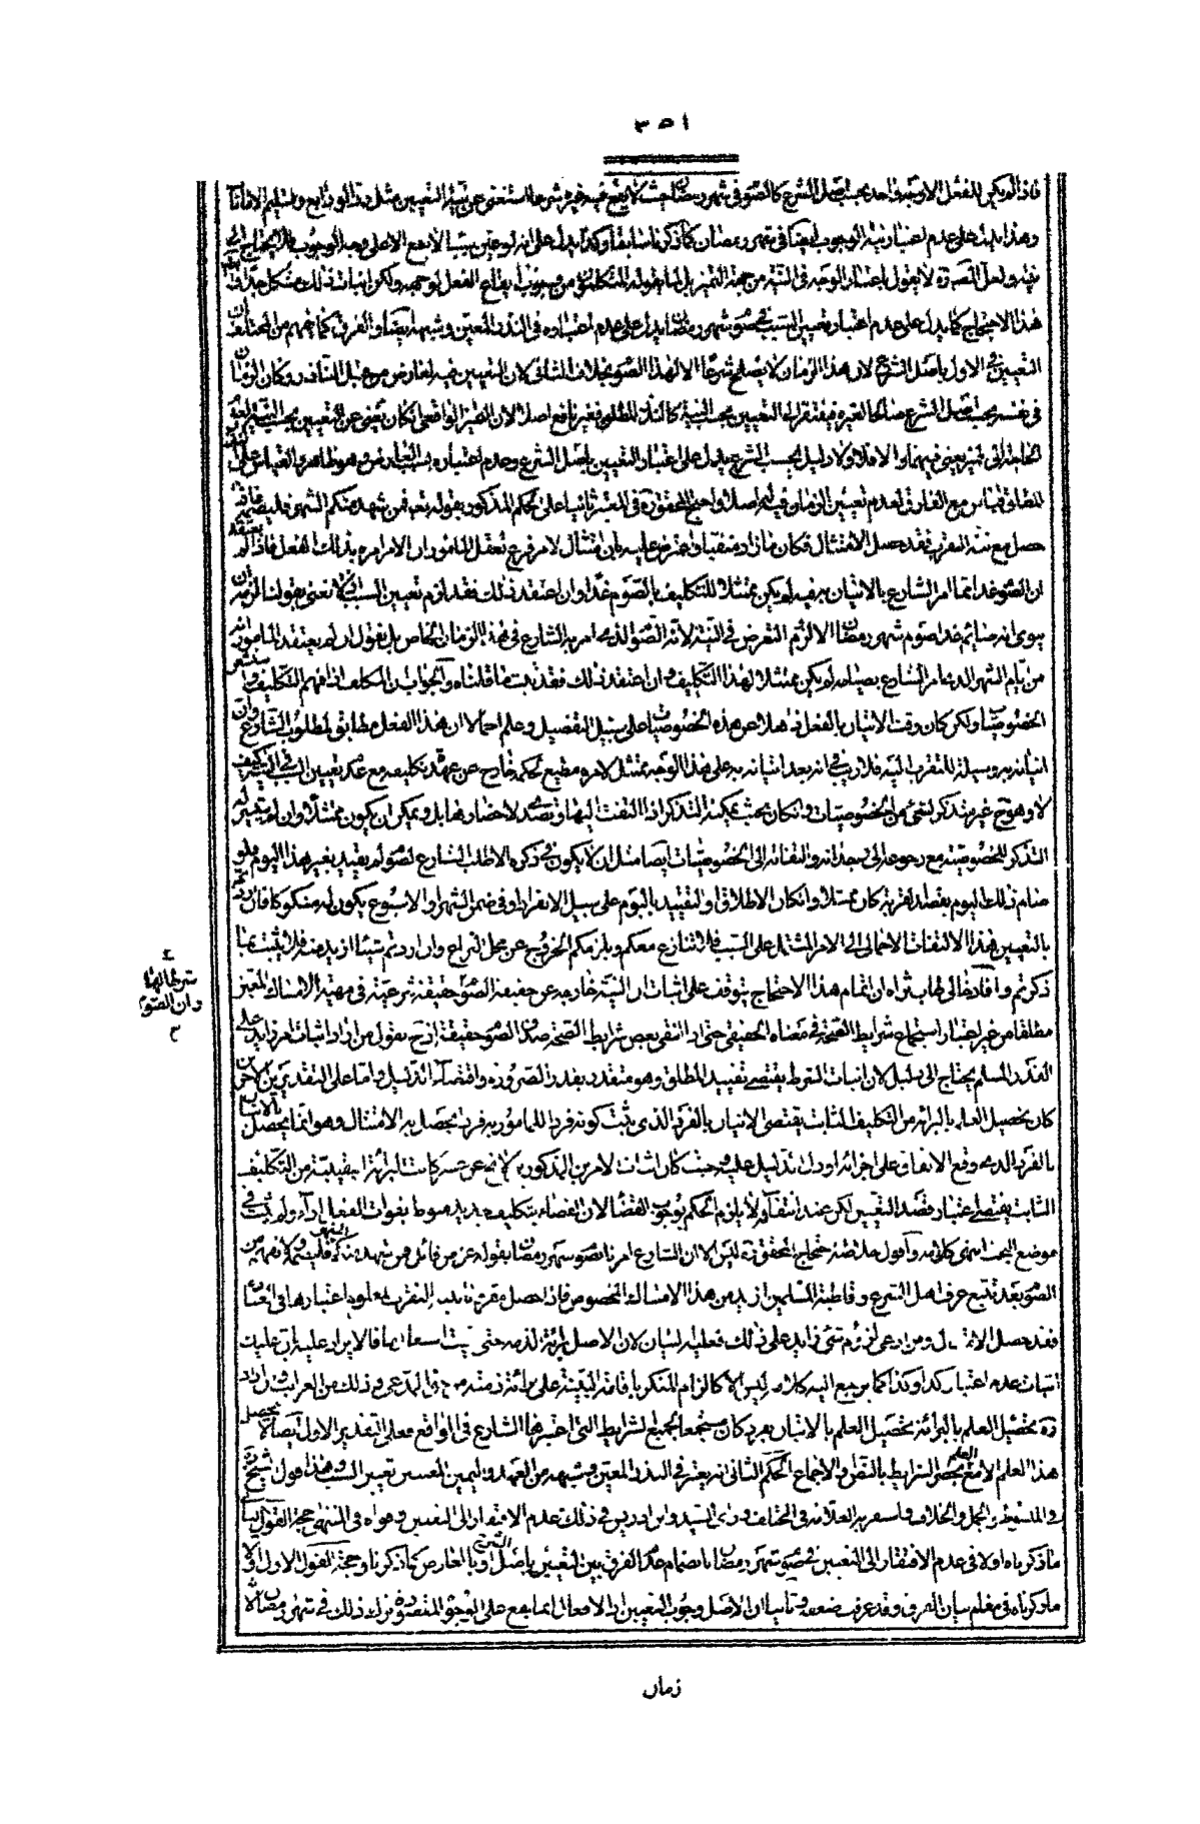 ٣٥١
فاذا لم يكن للفعل الا وجه واحد بحسب اصل الشرع كالصوم في شهر رمضان بحيث لا يقع فيه غيره شرعا استغنى عن نية التعيين مثل رد الودايع وتسليم الامانات
وهذا يدل على عدم اعتبار نية الوجوب ايضا في شهر رمضان كما ذكرنا سابقا وكذا يدل على انه لو عين سببا لا يقع الا على وجه الوجوب فلا يحتاج الى
نيته ولعل السيد ره لا يقول باعتبار الوجه في النية من جهة التميز بل لما يقوله المتكلمون من وجوب ايقاع الفعل لوجهه ولكن اثبات ذلك مشكل جدا
هذا الاحتجاج كما يدل على عدم اعتبار تعيين السبب في صوم شهر رمضان يدل على عدم اعتباره في النذر المعين وشبهه ايضا والفرق كما فهم من المختلف
التعيين في الاول باصل الشرع لان هذا الزمان لا يصلح شرعا الا لهذا الصوم بخلاف الثاني لان التعيين فيه لعارض من قبل الناذر وكان الزمان
في نفسه بحسب اصل الشرع صالحا لغيره فيفتقر الى التعيين بحسب النية كالنذر المطلق فغير نافع اصلا لان التميز الواقعي ان كان يغني عن التعيين بحسب النية
الحاجة الى تميز يغني فيهما والا فلا ولا دليل بحسب الشرع يدل على اعتبار التعيين باصل الشرع وعدم اعتباره بسبب العارض وهو ظاهر والقياس على
المطلق قياس مع الفارق لعدم تعيين الزمان فيه اصلا واحتج المحقق ره في المعتبر ثانيا على الحكم المذكور بقوله تعالى فمن شهد منكم الشهر فليصمه
حصل مع نية القربة فقد حصل الامتثال فكان ما زاد منفيا واعترض عليه بان امتثال الامر فرع تعقل المأمور ان الامر امره بذلك الفعل فاذا لم يعتقد
ان الصوم غدا مما امر الشارع بالاتيان به فيه لم يكن ممتثلا للتكليف بالصوم غدا وان اعتقد ذلك فقد لزم تعيين السبب اذ لا نعني بقولنا لزمه ان
ينوي انه صائم غدا صوم شهر رمضان الا لزم التعرض في النية لانه الصوم الذي امر به الشارع في هذا الزمان الخاص بل نقول ان لم يعتقد المأمور انه
من ايام الشهر الذي امر الشارع بصيامه لم يكن ممتثلا لهذا التكليف وان اعتقد ذلك فقد ثبت ما قلناه والجواب ان المكلف اذا فهم التكليف
الخصوصيات ولكن كان وقت الاتيان بالفعل ذاهلا عن هذه الخصوصيات على سبيل التفصيل وعلم اجمالا ان هذا الفعل مطابق لمطلوب الشارع وان
اتيانه به وسيلة للتقرب اليه فلا ريب في انه بعد اتيانه به على هذا الوجه ممتثل لامره مطيع لحكمه خارج عن عهدة تكليفه مع عدم تعيين السبب في النية كيف
لا وهو ح غير متذكر لشيء من الخصوصيات وان كان بحيث يمكنه التذكر اذا التفت اليها وتصدى لاحضارها بل ويمكن ان يكون ممتثلا وان لم يتيسر له
التذكر للخصوصية مع رجوعه الى وجدانه والتفاته الى الخصوصيات ايضا مثل ان لا يكون في ذكره الا طلب الشارع لصوم لم يقيد بغير هذا اليوم فلو
صام ذلك اليوم بقصد القربة كان ممتثلا وان كان الاطلاق او التقييد باليوم على سبيل الانفراد او في ضمن الشهر او الاسبوع يكون له مشكوكا فان
بالتعيين هذا الالتفات الاجمالي الى الامر المشتمل على السبب فلا تنازع معكم ويلزمكم الخروج عن محل النزاع وان اردتم شيئا ازيد منه فلا يثبت بما
ذكرتم وافاد خالي طاب ثراه ان تمام هذا الاحتجاج يتوقف على اثبات ان النية خارجة عن حقيقة الصوم حقيقة شرعية في مهية الامساك المعتبر
مطلقا من غير اعتبار استجماع شرايط الصحة في معناه الحقيقي حتى اذا انتفى بعض شرايط الصحة صدق الصوم حقيقة اذ ح نقول من اراد اثبات امر زايد على
القدر المسلم يحتاج الى دليل لان اثبات الشرط يقتضي تقييد المطلق وهو متقدر بقدر الضرورة واقتضاء الدليل واما على التقديرين الاخرين
كان تحصيل العلم بالبرائة من التكليف الثابت يقتضي الاتيان بالفرد الذي ثبت كونه فردا للمامور به فردا يحصل به الامتثال وهو انما يحصل بالاتيان
بالفرد الذي وقع الاتفاق على اجزائه او دل الدليل عليه وحيث كان اثبات الامرين المذكورين لا يخ عن عسر كانت البرائة اليقينية من التكليف
الثابت يقتضي اعتبار قصد التعيين لكن عند انتفائه لا يلزم الحكم بوجوب القضاء لان القضاء بتكليف جديد منوط بفوات الفعل اداء ولم يثبت في
موضع البحث انتهى كلامه واقول ملخص احتجاج المحقق ره ليس الا ان الشارع امرنا بصوم شهر رمضان بقوله عز من قائل فمن شهد منكم الشهر فليصمه ولا نفهم من
الصوم بعد تتبع عرف اهل الشرع وقاطبة المسلمين ازيد من هذا الامساك المخصوص فاذا حصل مقرنا بنية التقرب المعلوم اعتبارها في العبادات
فقد حصل الامتثال ومن ادعى لزوم شيء زايد على ذلك فعليه البيان لان الاصل برائة الذمة حتى يثبت اشتغالها فالايراد عليه بان عليك
اثبات عدم اعتبار كذا وكذا كما يرجع اليه كلامه ليس الا كالزام المنكر باقامة البينة على برائة ذمته من حق المدعي وذلك من الغرايب وان اراد
ره بتحصيل العلم بالبرائة تحصيل العلم بالاتيان بفرد كان مستجمعا لجميع الشرايط التي اعتبرها الشارع في الواقع فعلى التقدير الاول ايضا لا يحصل
هذا العلم الا مع العلم بحصر الشرايط بالنص او الاجماع الحكم الثاني انه يعتبر في النذر المعين وشبهه من العهد واليمين المعينين تعيين السبب وهذا قول الشيخ
في المبسوط والجمل والخلاف واستقر به العلامة في المختلف وذهب السيد وابن ادريس في ذلك عدم الافتقار الى التعيين وقواه في المنتهى حجة القول الثاني
ما ذكرناه اولا في عدم الافتقار الى التعيين في صوم شهر رمضان بانضمام عدم الفرق بين التعيين باصل الشرع او بالعارض كما ذكرنا وحجة القول الاول اولا
ما ذكرناه في مقام بيان الفرق وقد عرفت ضعفه وثانيا ان الاصل وجوب التعيين اذ الافعال انما يقع على الوجوه المقصودة ترك ذلك في شهر رمضان لانه
شرطا لها
وان الصوم
زمان